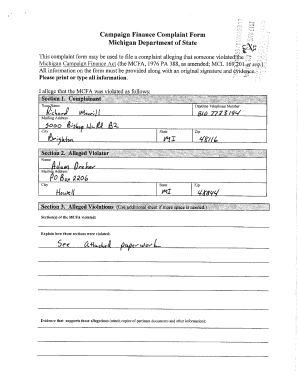 Campaign Finance Complaint Form
Michigan Department of State
This complaint form may be used to file a complaint alleging that someone violated the
Michigan Campaign Finance Act (the MCFA, 1976 PA 388, as amended; MCL 169.201 et seq.).
All information on the form must be provided along with an original signature and evidence.
Please print or type all information.
I allege that the MCFA was violated as follows:
Section 1. Complainant
Your Name
Daytime Telephone Number
Richard Merrill
810 7728194
Mailing Address
5000 Bishop
City
State
Zip
Brighton
MI
48116
Section 2. Alleged Violator
Name
Adam Dreher
Mailing Address
PO Box 2206
City
State
Zip
Howell
MI
48844
Section 3. Alleged Violations (Use additional sheet if more space is needed.)
Section(s) of the MCFA violated:
Explain how those sections were violated:
See attached paperwork
Evidence that supports those allegations (attach copies of pertinent documents and other information):